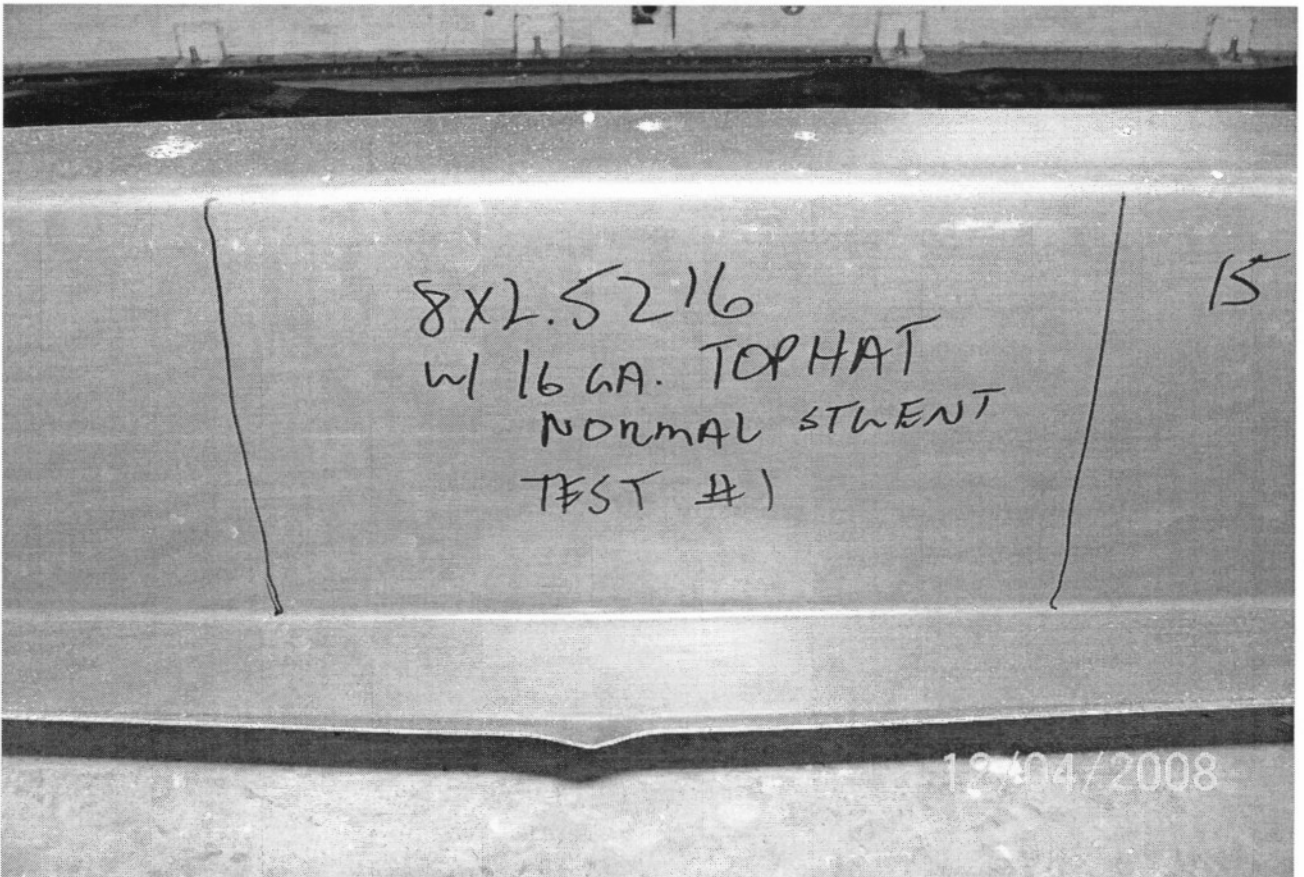 8X2.5Z16
W/ 16 GA. TOPHAT
NORMAL
TEST #1
15
12/04/2008